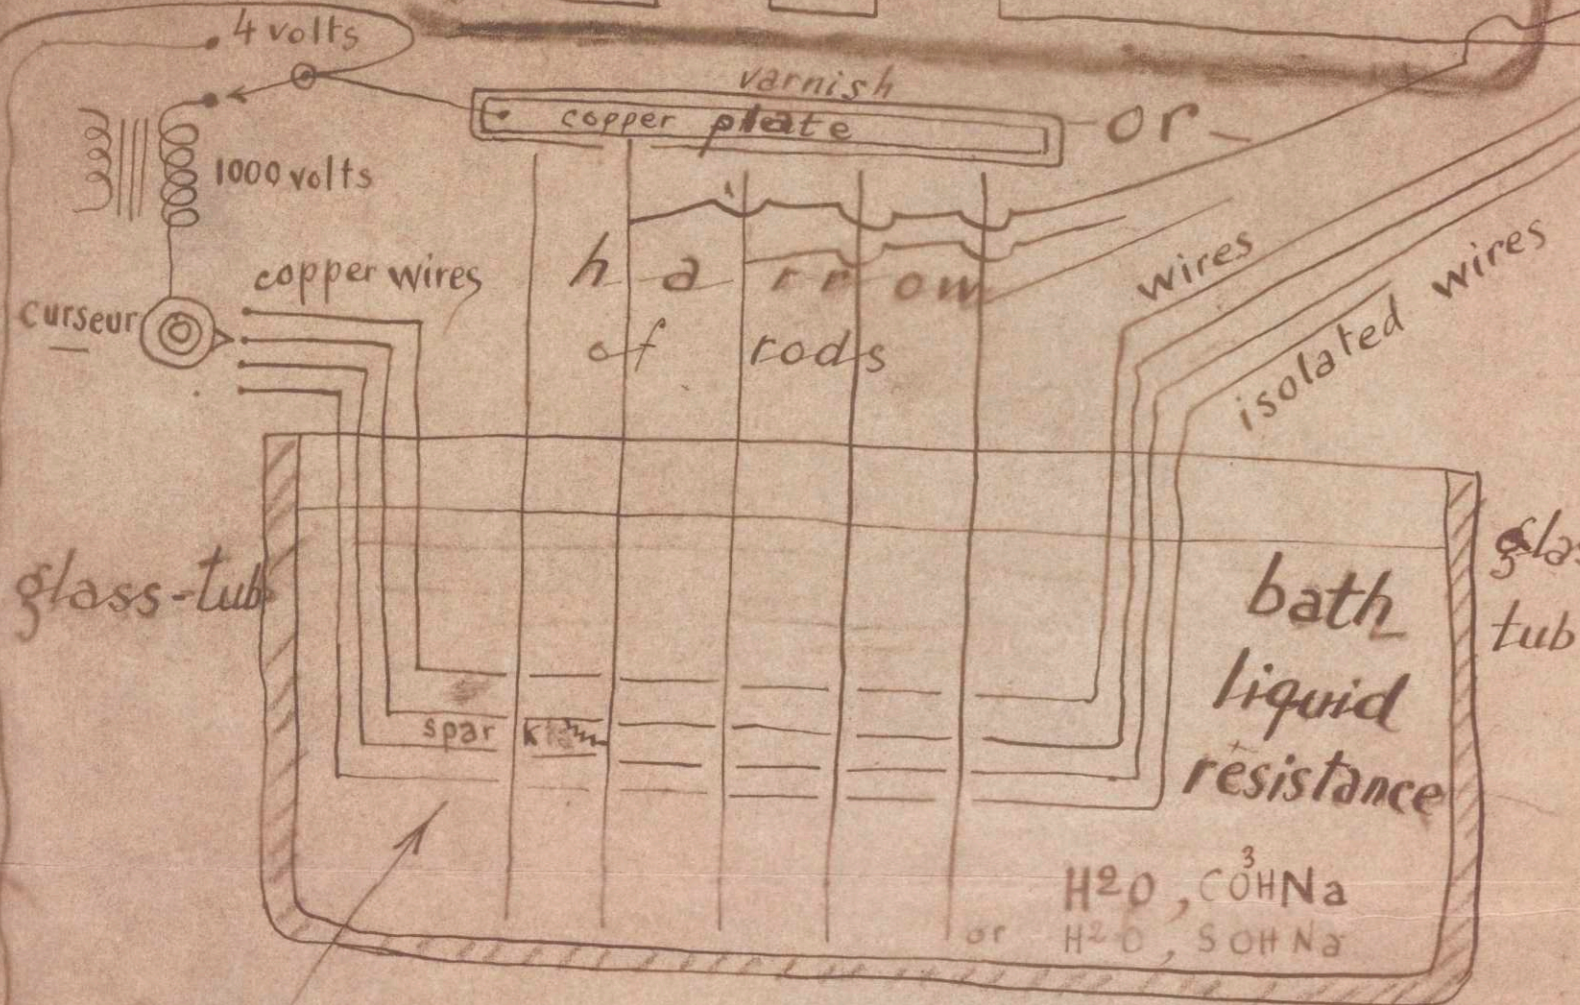 4 volts
varnish
copper plate
or
1000 volts
copper wires
harrow
of rods
curseur
wires
isolated wires
glass-tub
bath
liquid
resistance
tub
spark
H2O, CO3HNa
or H2O, SOHNa